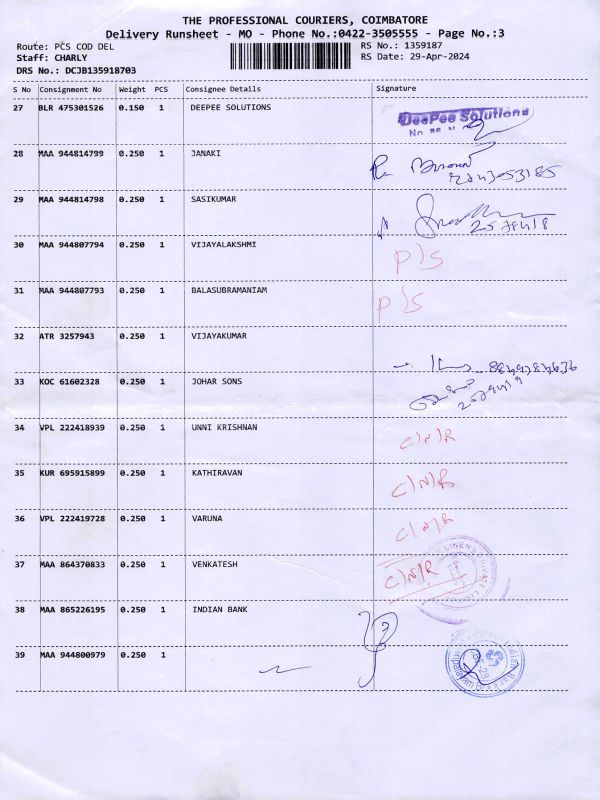 THE PROFESSIONAL COURIERS, COIMBATORE
Delivery Runsheet - MO - Phone No.:0422-3505555 - Page No.:3
Route: PCS COD DEL RS No.: 1359187
Staff: CHARLY RS Date: 29-Apr-2024
DRS No.: DCJB135918703
S No Consignment No Weight PCS Consignee Details Signature
27 BLR 475301526 0.150 1 DEEPEE SOLUTIONS DeePee Solutions
28 MAA 944814799 0.250 1 JANAKI
29 MAA 944814798 0.250 1 SASIKUMAR
30 MAA 944807794 0.250 1 VIJAYALAKSHMI P/S
31 MAA 944807793 0.250 1 BALASUBRAMANIAM P/S
32 ATR 3257943 0.250 1 VIJAYAKUMAR
33 KOC 61602328 0.250 1 JOHAR SONS
34 VPL 222418939 0.250 1 UNNI KRISHNAN C/N/R
35 KUR 695915899 0.250 1 KATHIRAVAN C/N/R
36 VPL 222419728 0.250 1 VARUNA C/N/R
37 MAA 864370833 0.250 1 VENKATESH C/N/R
38 MAA 865226195 0.250 1 INDIAN BANK
39 MAA 944800979 0.250 1